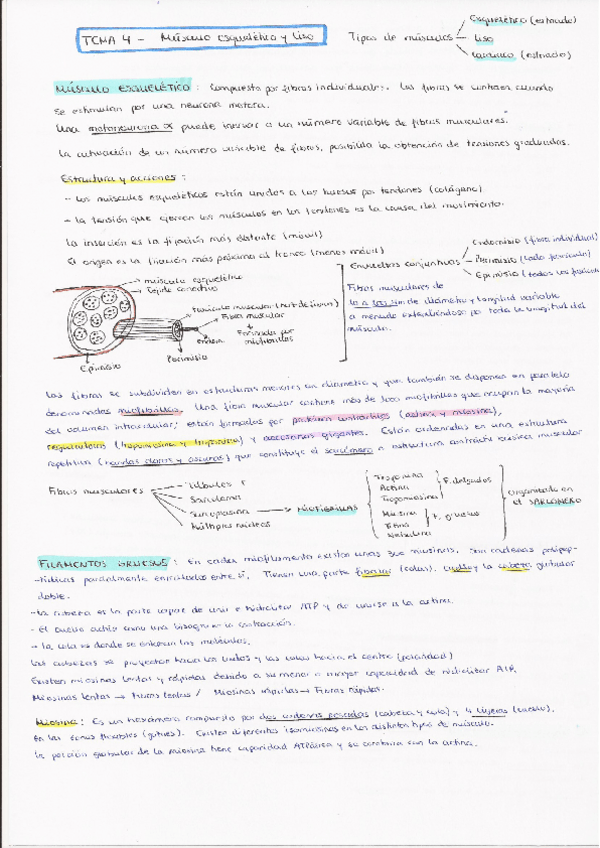 TEMA 4 - Músculo esquelético y liso
Tipos de músculos
Esquelético (estriado)
Liso
Cardiaco (estriado)
MÚSCULO ESQUELÉTICO: Compuesto por fibras individuales. Las fibras se contraen cuando
se estimulan por una neurona motora.
Una motoneurona α puede inervar a un número variable de fibras musculares.
La activación de un número variable de fibras, posibilita la obtención de tensiones graduadas.
Estructura y acciones:
- Los músculos esqueléticos están unidos a los huesos por tendones (colágeno)
- La tensión que ejercen los músculos en los tendones es la causa del movimiento.
La inserción es la fijación más distante (móvil)
El origen es la fijación más próxima al tronco (menos móvil)
Envueltas conjuntivas
Endomisio (fibra individual)
Perimisio (cada fascículo)
Epimisio (todos los fascículos
Fibras musculares de
de diámetro y longitud variable
a menudo extendiéndose por toda la longitud del
músculo.
músculo esquelético
Tejido conectivo
Fascículo muscular
Fibra muscular
Formadas por
miofibrillas
Perimisio
Epimisio
Las fibras se subdividen en estructuras menores en diámetro y que también se disponen en paralelo
denominadas miofibrillas. Una fibra muscular contiene más de 1000 miofibrillas que ocupan la mayoría
del volumen intracelular; están formadas por proteínas contráctiles (actina y miosina),
reguladoras (tropomiosina y troponina) y accesorias gigantes. Están ordenadas en una estructura
repetitiva (bandas claras y oscuras) que constituye el sarcómero o estructura contráctil básica muscular
Fibras musculares
Túbulos T
Sarcolema
Sarcoplasma → MIOFIBRILLAS
Múltiples núcleos
Troponina
Actina
Tropomiosina
F. delgados
Miosina
Titina
Nebulina
F. gruesos
Organizado en
el SARCÓMERO
FILAMENTOS GRUESOS: En cada miofilamento existen unas 300 miosinas. Son cadenas polipep-
-tídicas parcialmente enrolladas entre sí. Tienen una parte fibrilar (colas), cuello y la cabeza globular
doble.
- La cabeza es la parte capaz de unir e hidrolizar ATP y de unirse a la actina.
- El cuello actúa como una bisagra en la contracción.
- La cola es donde se enlazan las moléculas.
Las cabezas se proyectan hacia los lados y las colas hacia el centro (polaridad)
Existen miosinas lentas y rápidas debido a su menor o mayor capacidad de hidrolizar ATP.
Miosinas lentas → Fibras lentas / Miosinas rápidas → Fibras rápidas.
Miosina: Es un hexámero compuesto por dos cadenas pesadas (cabeza y cola) y 4 ligeras (cuello).
en las zonas flexibles (goznes). Existen diferentes isomiosinas en los distintos tipos de músculo.
La porción globular de la miosina tiene capacidad ATPásica y se combina con la actina.